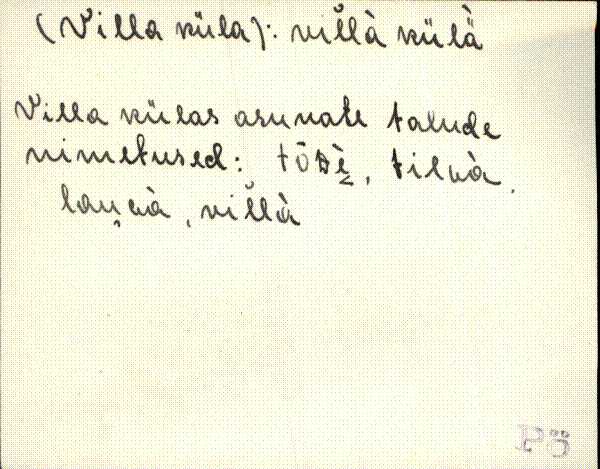 (Villa küla): vil̆là külà̈
Villa külas asuvate talude
nimetused: tȭzè̬, tilkà,
lau̯kà, vil̆là
Pö